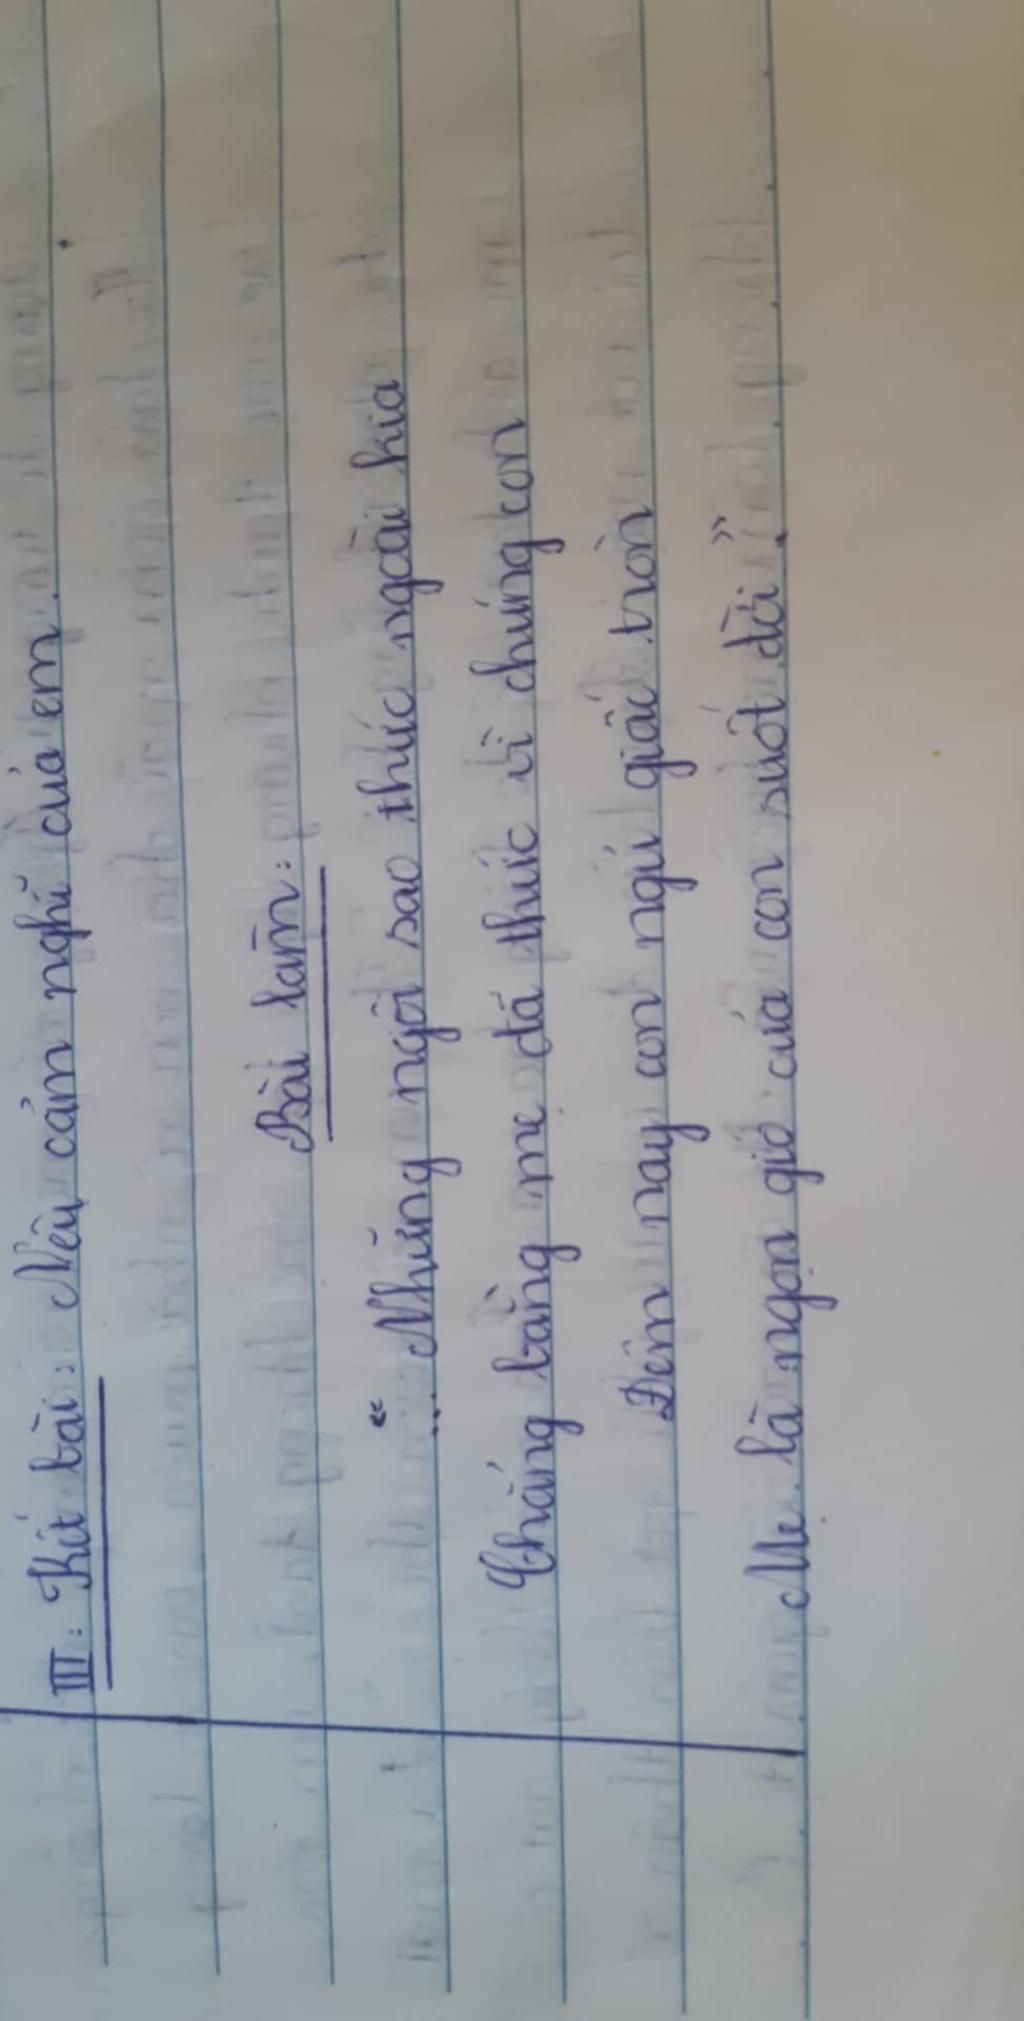 III: Kết bài: Nêu cảm nghĩ của em.
Bài làm:
"... Những ngôi sao thức ngoài kia
Chẳng bằng mẹ đã thức vì chúng con
Đêm nay con ngủ giấc tròn
Mẹ là ngọn gió của con suốt đời."